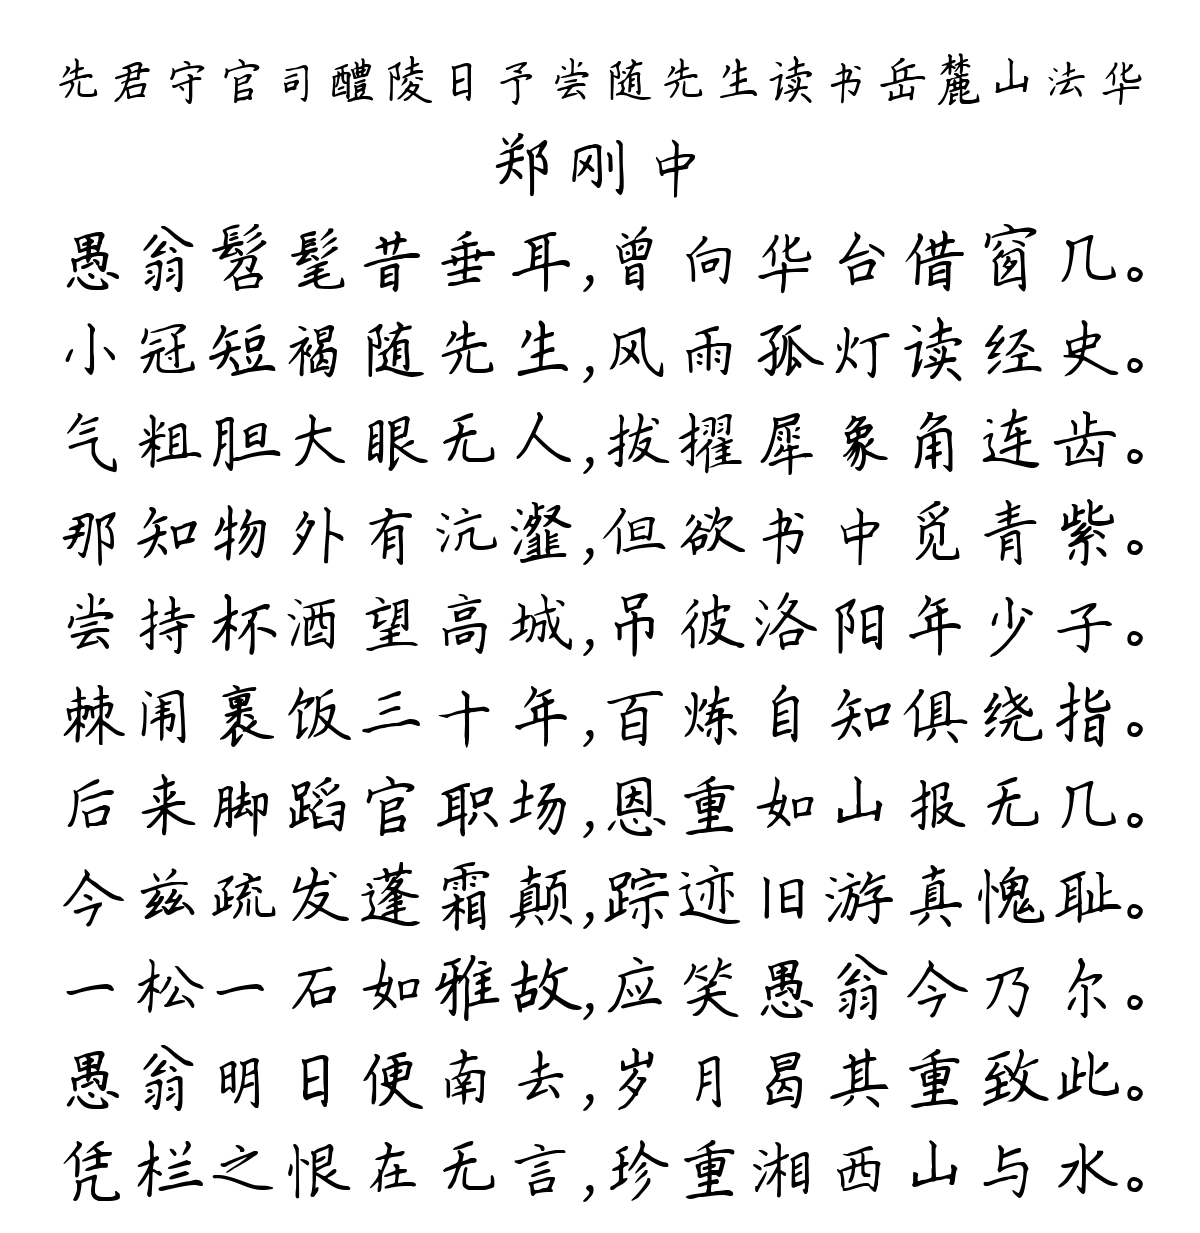 先君守官司醴陵日予尝随先生读书岳麓山法华
郑刚中
愚翁髫髦昔垂耳,曾向华台借窗几。
小冠短褐随先生,风雨孤灯读经史。
气粗胆大眼无人,拔擢犀象角连齿。
那知物外有沆瀣,但欲书中觅青紫。
尝持杯酒望高城,吊彼洛阳年少子。
棘闱裹饭三十年,百炼自知俱绕指。
后来脚蹈官职场,恩重如山报无几。
今兹疏发蓬霜颠,踪迹旧游真愧耻。
一松一石如雅故,应笑愚翁今乃尔。
愚翁明日便南去,岁月曷其重致此。
凭栏之恨在无言,珍重湘西山与水。